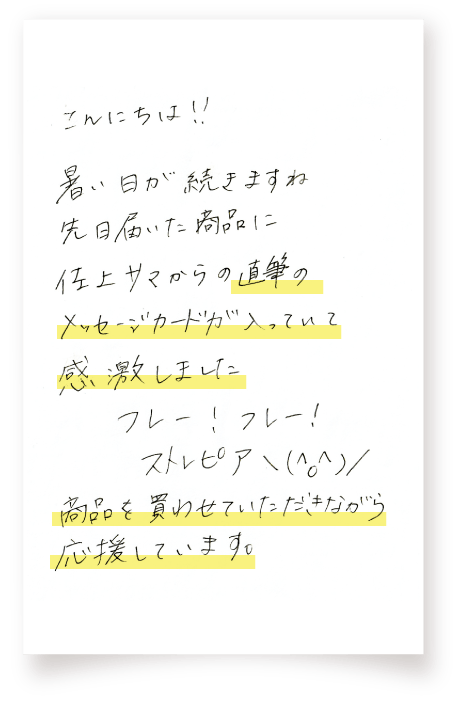 こんにちは!!
暑い日が続きますね
先日届いた商品に
佐上サマからの直筆の
メッセージカードが入っていて
感激しました
フレー!フレー!
ストレピア＼(^o^)／
商品を買わせていただきながら
応援しています。